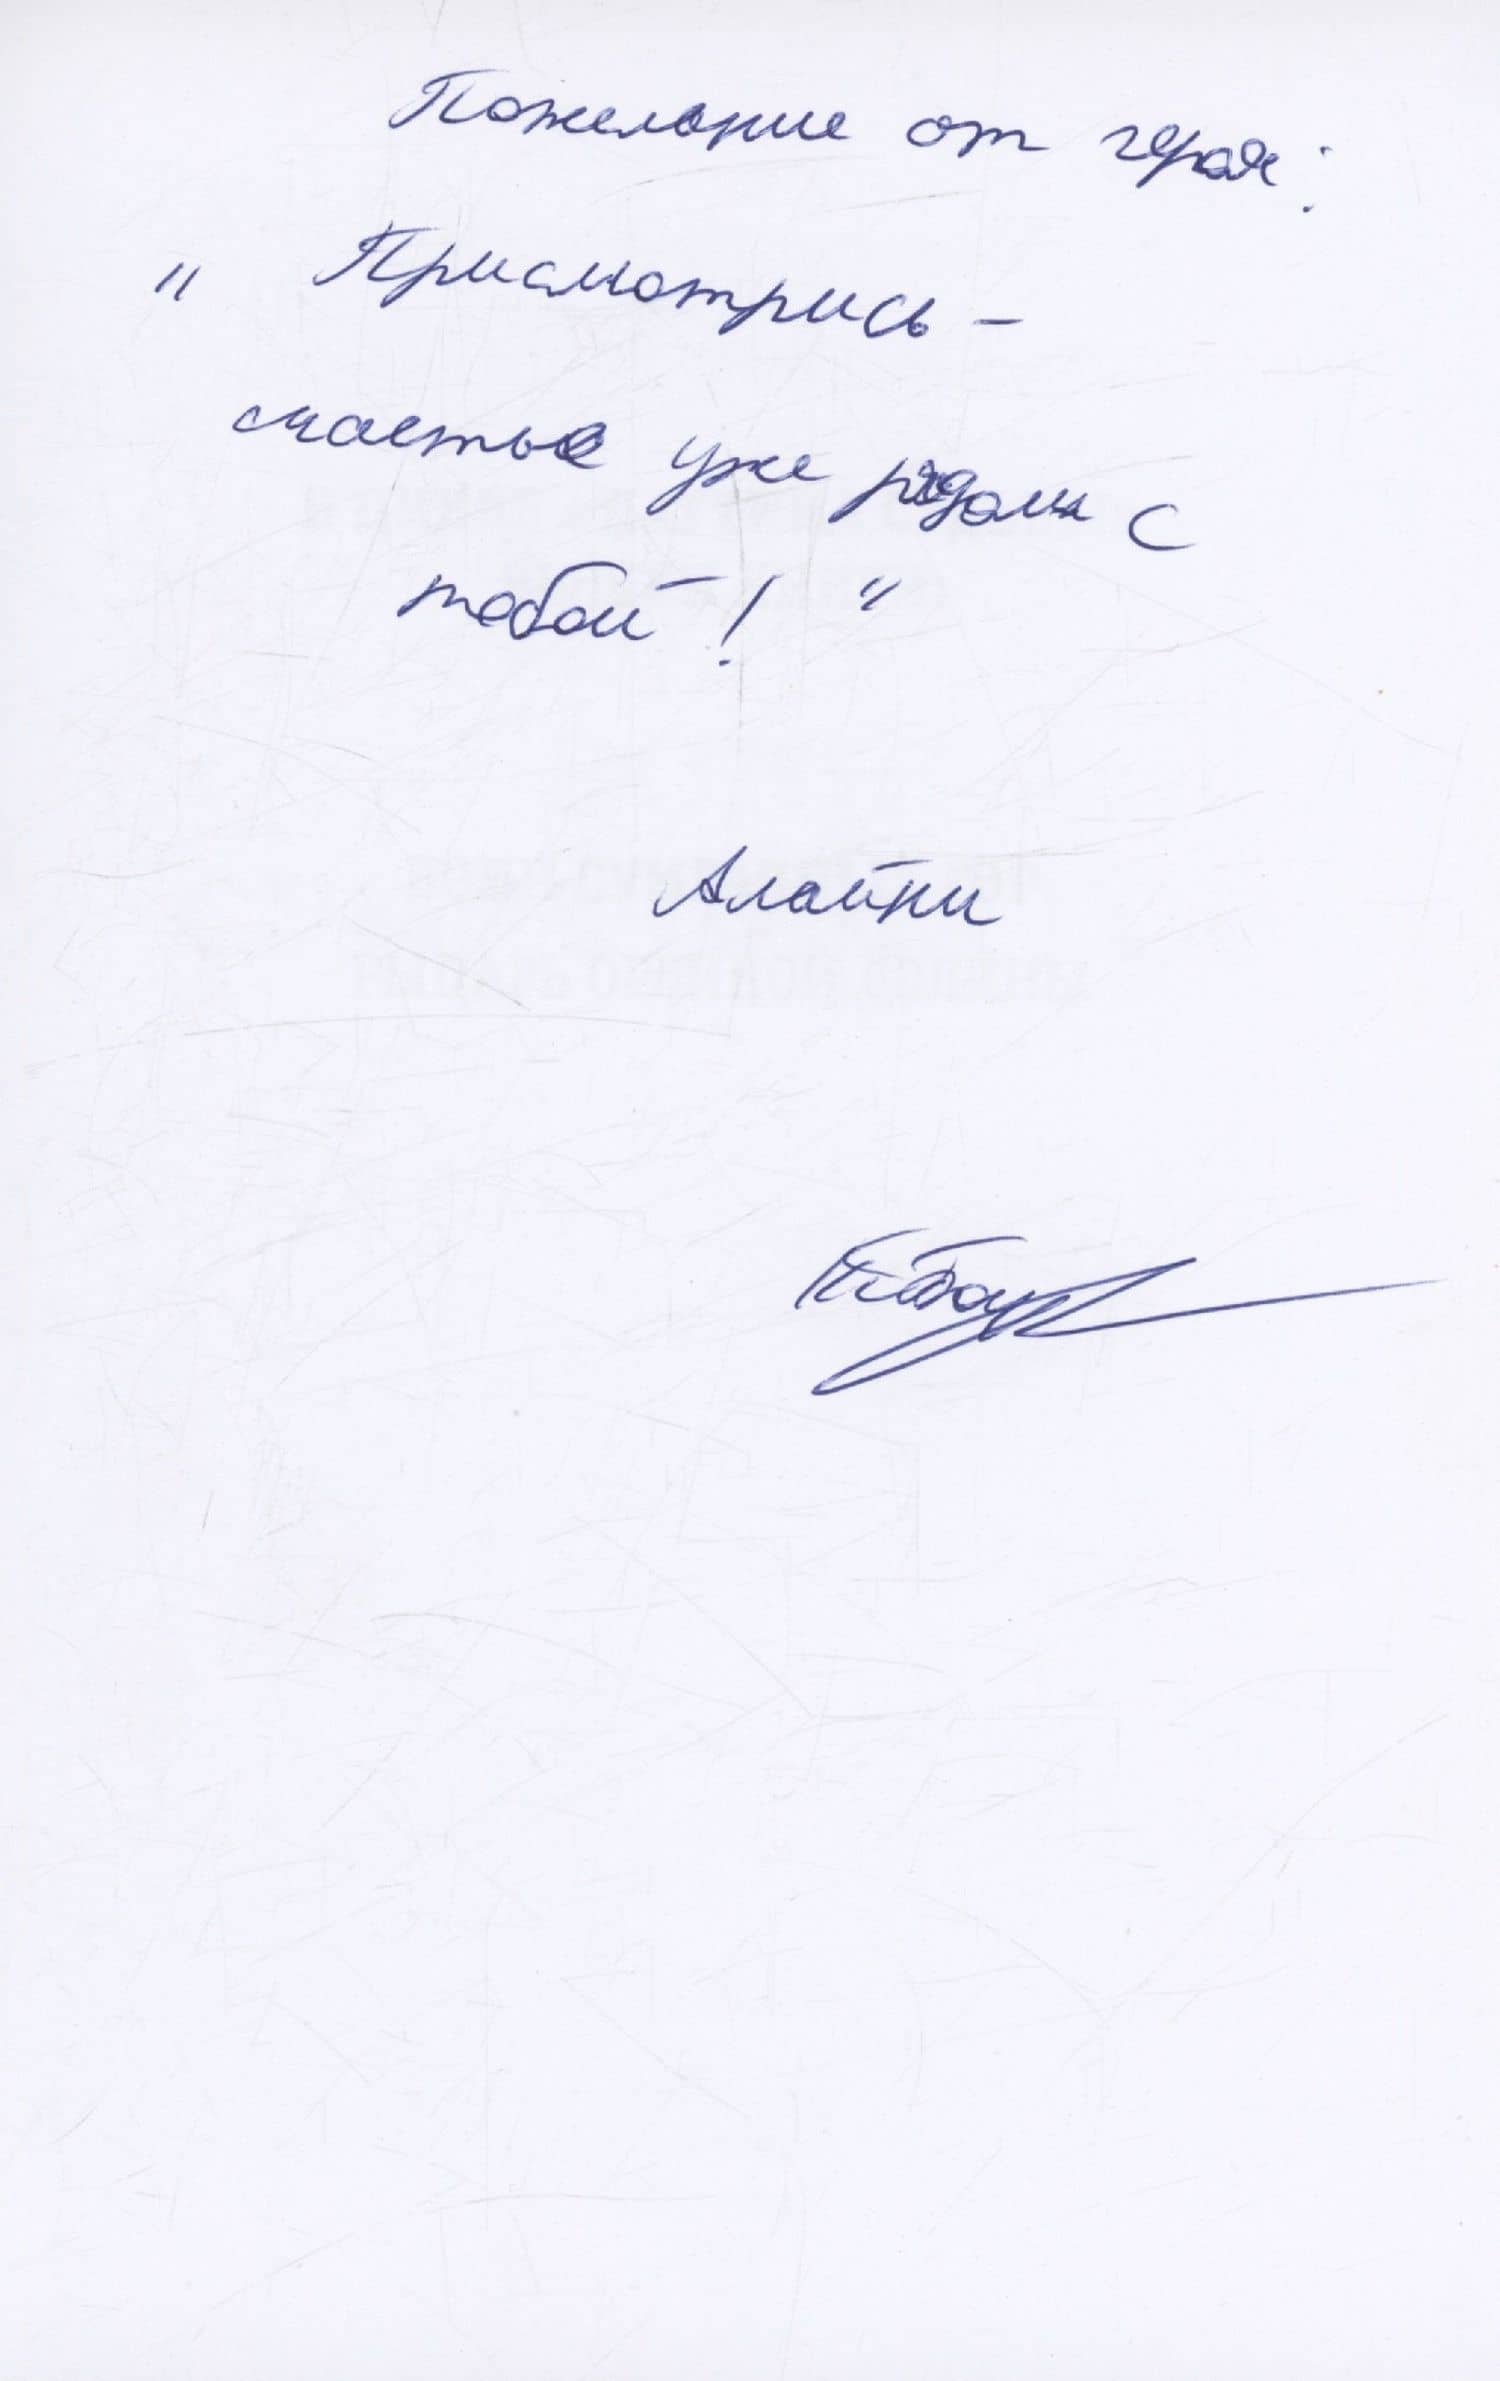 Пожелание от героя:
" Присмотрись -
счастье уже рядом с
тобой! "
Алайни